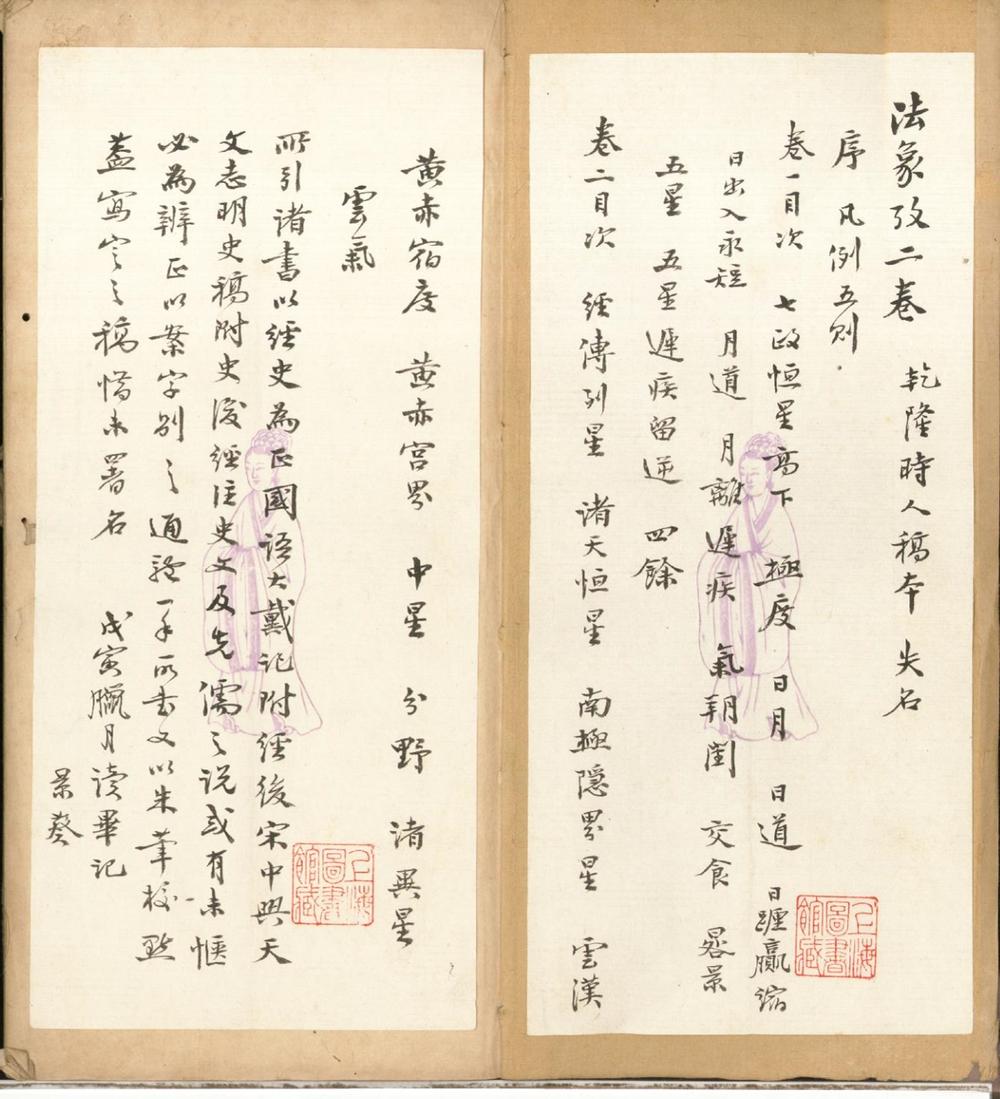 法象攷二卷　乾隆時人稿本　失名
序　凡例五則
卷一目次　七政恒星高下　極度　日月　日道　日躔贏縮
日出入永短　月道　月離遲疾　氣朔閏　交食　晷景
五星　五星遲疾留逆　四餘
卷二目次　經傳列星　諸天恒星　南極隱界星　雲漢
黃赤宿度　黃赤宮界　中星　分野　諸異星
雲氣
所引諸書以經史為正國語大戴記附經後宋中興天
文志明史稿附史後經注史文及先儒之説或有未愜
必為辨正以案字別之通體一手所書文以朱筆校點
蓋寫定之稿惜未署名　戊寅臘月讀畢記
景葵
上海圖書館藏
上海圖書館藏